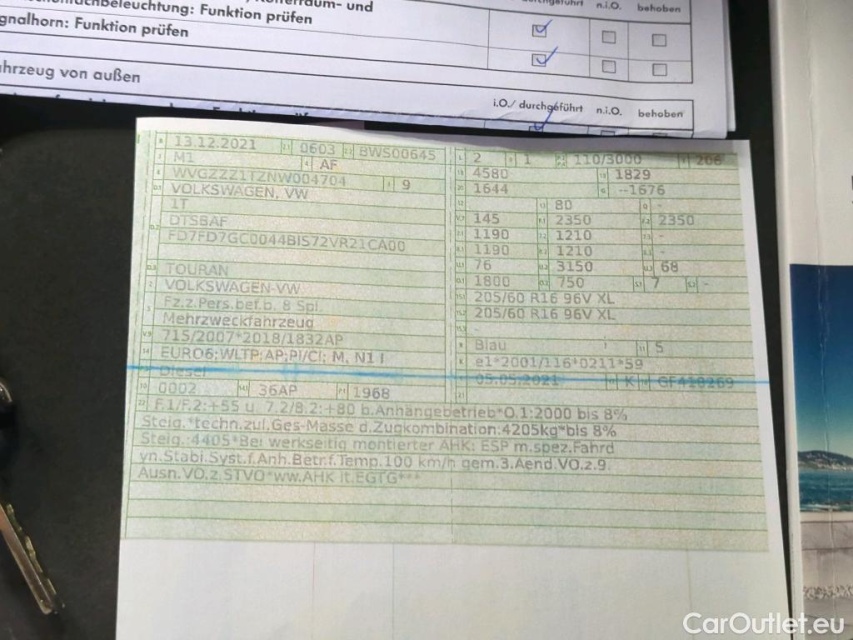 Kofferraum- und
beleuchtung: Funktion prüfen
gnalhorn: Funktion prüfen
n.i.O. behoben
ahrzeug von außen
i.O./ durchgeführt n.i.O. behoben
13.12.2021 0603 BWS00645 2 1 110/3000 206
M1 AF 4580 1829
WVGZZZ1TZNW004704 9 1644 --1676
VOLKSWAGEN, VW 80 -
1T 145 2350 2350
DTSBAF 1190 1210 -
FD7FD7GC0044BIS72VR21CA00 1190 1210 -
76 3150 68
TOURAN 1800 750 7 -
VOLKSWAGEN-VW 205/60 R16 96V XL
Fz.z.Pers.bef.b. 8 Spl. 205/60 R16 96V XL
Mehrzweckfahrzeug -
715/2007*2018/1832AP Blau 5
EURO6;WLTP;AP;PI/CI; M, N1 I e1*2001/116*0211*59
Diesel 05.05.2021 K GF418269
0002 36AP 1968
F.1/F.2:+55 u. 7.2/8.2:+80 b.Anhängebetrieb*O.1:2000 bis 8%
Steig.*techn.zul.Ges-Masse d.Zugkombination:4205kg*bis 8%
Steig.:4405*Bei werkseitig montierter AHK: ESP m.spez.Fahrd
yn.Stabi.Syst.f.Anh.Betr.f.Temp.100 km/h gem.3.Aend.VO.z.9.
Ausn.VO.z.STVO*ww.AHK lt.EGTG***
CarOutlet.eu